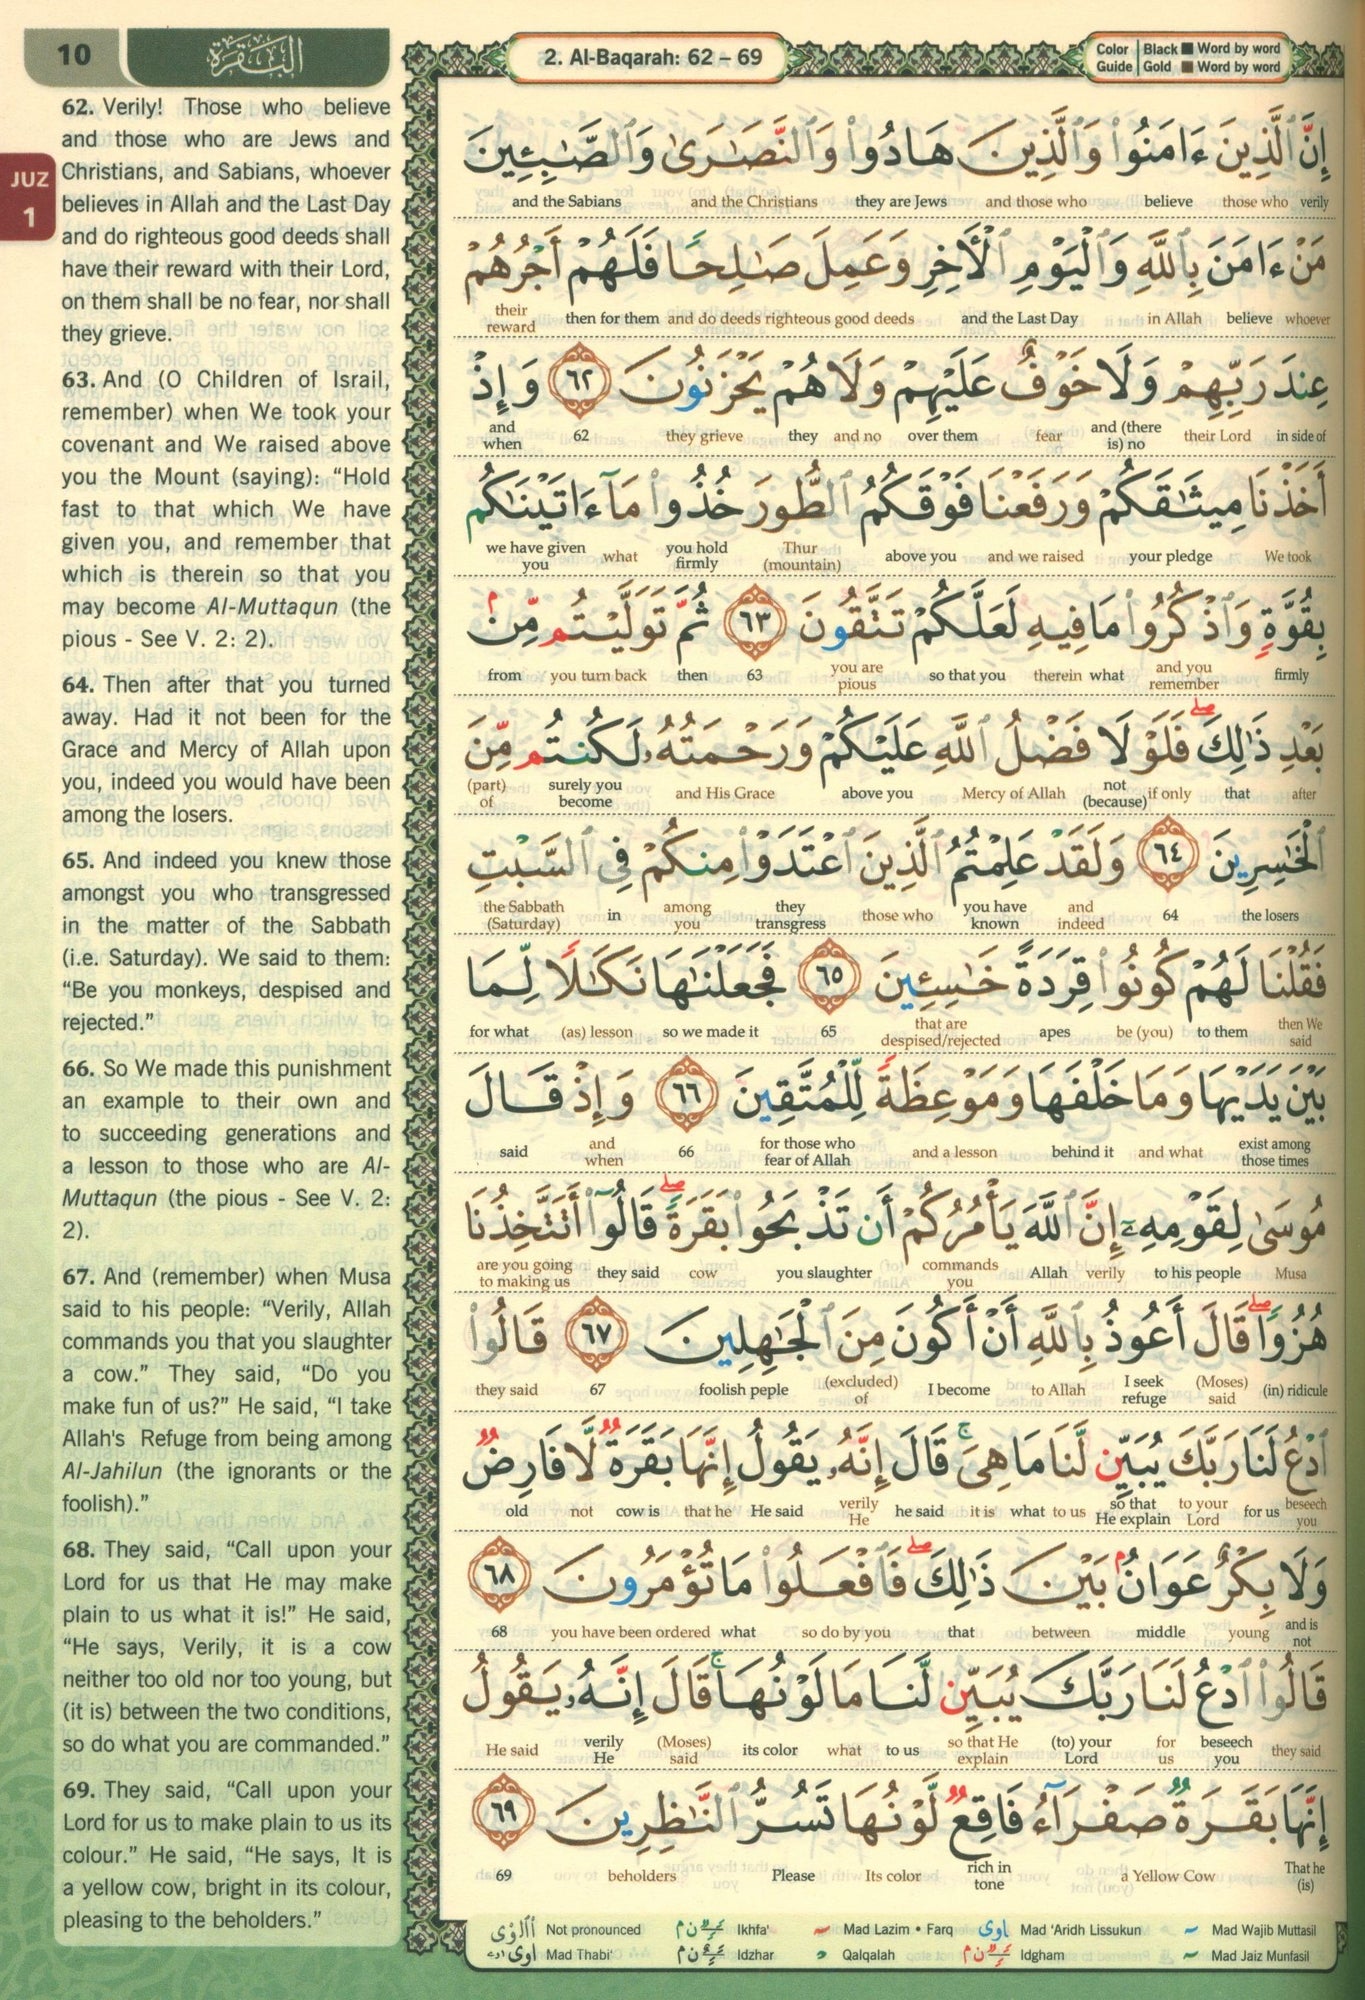 10
البقرة
2. Al-Baqarah: 62 – 69
Color Guide
Black Word by word
Gold Word by word
JUZ
1
62. Verily! Those who believe
and those who are Jews and
Christians, and Sabians, whoever
believes in Allah and the Last Day
and do righteous good deeds shall
have their reward with their Lord,
on them shall be no fear, nor shall
they grieve.
63. And (O Children of Israil,
remember) when We took your
covenant and We raised above
you the Mount (saying): “Hold
fast to that which We have
given you, and remember that
which is therein so that you
may become Al-Muttaqun (the
pious - See V. 2: 2).
64. Then after that you turned
away. Had it not been for the
Grace and Mercy of Allah upon
you, indeed you would have been
among the losers.
65. And indeed you knew those
amongst you who transgressed
in the matter of the Sabbath
(i.e. Saturday). We said to them:
“Be you monkeys, despised and
rejected.”
66. So We made this punishment
an example to their own and
to succeeding generations and
a lesson to those who are Al-
Muttaqun (the pious - See V. 2:
2).
67. And (remember) when Musa
said to his people: “Verily, Allah
commands you that you slaughter
a cow.” They said, “Do you
make fun of us?” He said, “I take
Allah's Refuge from being among
Al-Jahilun (the ignorants or the
foolish).”
68. They said, “Call upon your
Lord for us that He may make
plain to us what it is!” He said,
“He says, Verily, it is a cow
neither too old nor too young, but
(it is) between the two conditions,
so do what you are commanded.”
69. They said, “Call upon your
Lord for us to make plain to us its
colour.” He said, “He says, It is
a yellow cow, bright in its colour,
pleasing to the beholders.”
إِنَّ ٱلَّذِينَ ءَامَنُوا۟ وَٱلَّذِينَ هَادُوا۟ وَٱلنَّصَـٰرَىٰ وَٱلصَّـٰبِـِٔينَ
and the Sabians and the Christians they are Jews and those who believe those who verily
مَنْ ءَامَنَ بِٱللَّهِ وَٱلْيَوْمِ ٱلْـَٔاخِرِ وَعَمِلَ صَـٰلِحًا فَلَهُمْ أَجْرُهُمْ
their reward then for them and do deeds righteous good deeds and the Last Day in Allah believe whoever
عِندَ رَبِّهِمْ وَلَا خَوْفٌ عَلَيْهِمْ وَلَا هُمْ يَحْزَنُونَ ٦٢ وَإِذْ
and when 62 they grieve they and no over them fear and (there is) no their Lord in side of
أَخَذْنَا مِيثَـٰقَكُمْ وَرَفَعْنَا فَوْقَكُمُ ٱلطُّورَ خُذُوا۟ مَآ ءَاتَيْنَـٰكُم
we have given you what you hold firmly Thur (mountain) above you and we raised your pledge We took
بِقُوَّةٍ وَٱذْكُرُوا۟ مَا فِيهِ لَعَلَّكُمْ تَتَّقُونَ ٦٣ ثُمَّ تَوَلَّيْتُم مِّنۢ
from you turn back then 63 you are pious so that you therein what and you remember firmly
بَعْدِ ذَٰلِكَ ۖ فَلَوْلَا فَضْلُ ٱللَّهِ عَلَيْكُمْ وَرَحْمَتُهُۥ لَكُنتُم مِّنَ
(part) of surely you become and His Grace above you Mercy of Allah not (because) if only that after
ٱلْخَـٰسِرِينَ ٦٤ وَلَقَدْ عَلِمْتُمُ ٱلَّذِينَ ٱعْتَدَوْا۟ مِنكُمْ فِى ٱلسَّبْتِ
the Sabbath (Saturday) in among you they transgress those who you have known and indeed 64 the losers
فَقُلْنَا لَهُمْ كُونُوا۟ قِرَدَةً خَـٰسِـِٔينَ ٦٥ فَجَعَلْنَـٰهَا نَكَـٰلًا لِّمَا
for what (as) lesson so we made it 65 that are despised/rejected apes be (you) to them then We said
بَيْنَ يَدَيْهَا وَمَا خَلْفَهَا وَمَوْعِظَةً لِّلْمُتَّقِينَ ٦٦ وَإِذْ قَالَ
said and when 66 for those who fear of Allah and a lesson behind it and what exist among those times
مُوسَىٰ لِقَوْمِهِۦٓ إِنَّ ٱللَّهَ يَأْمُرُكُمْ أَن تَذْبَحُوا۟ بَقَرَةً ۖ قَالُوٓا۟ أَتَتَّخِذُنَا
are you going to making us they said cow you slaughter commands you Allah verily to his people Musa
هُزُوًا ۖ قَالَ أَعُوذُ بِٱللَّهِ أَنْ أَكُونَ مِنَ ٱلْجَـٰهِلِينَ ٦٧ قَالُوا۟
they said 67 foolish peple (excluded) of I become to Allah I seek refuge (Moses) said (in) ridicule
ٱدْعُ لَنَا رَبَّكَ يُبَيِّن لَّنَا مَا هِىَ ۚ قَالَ إِنَّهُۥ يَقُولُ إِنَّهَا بَقَرَةٌ لَّا فَارِضٌ
old not cow is that he He said verily He he said it is what to us so that He explain to your Lord for us beseech you
وَلَا بِكْرٌ عَوَانٌۢ بَيْنَ ذَٰلِكَ ۖ فَٱفْعَلُوا۟ مَا تُؤْمَرُونَ ٦٨
68 you have been ordered what so do by you that between middle young and is not
قَالُوا۟ ٱدْعُ لَنَا رَبَّكَ يُبَيِّن لَّنَا مَا لَوْنُهَا ۚ قَالَ إِنَّهُۥ يَقُولُ
He said verily He (Moses) said its color what to us so that He explain (to) your Lord for us beseech you they said
إِنَّهَا بَقَرَةٌ صَفْرَآءُ فَاقِعٌ لَّوْنُهَا تَسُرُّ ٱلنَّـٰظِرِينَ ٦٩
69 beholders Please Its color rich in tone a Yellow Cow That he (is)
Not pronounced Ikhfa' Mad Lazim • Farq اوى Mad 'Aridh Lissukun Mad Wajib Muttasil
Mad Thabi' Idzhar Qalqalah Idgham Mad Jaiz Munfasil